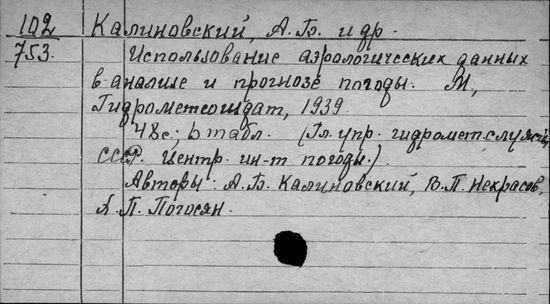 102 Калиновский, А.Б. и др.
753. Использование аэрологических данных
в анализе и прогнозе погоды. М.,
Гидрометеоиздат, 1939.
48с.; 6 табл. (Гл. упр. гидромет. службы
СССР. Центр. ин-т погоды.)
Авторы: А.Б. Калиновский, В.П. Некрасов,
Х.П. Погосян.